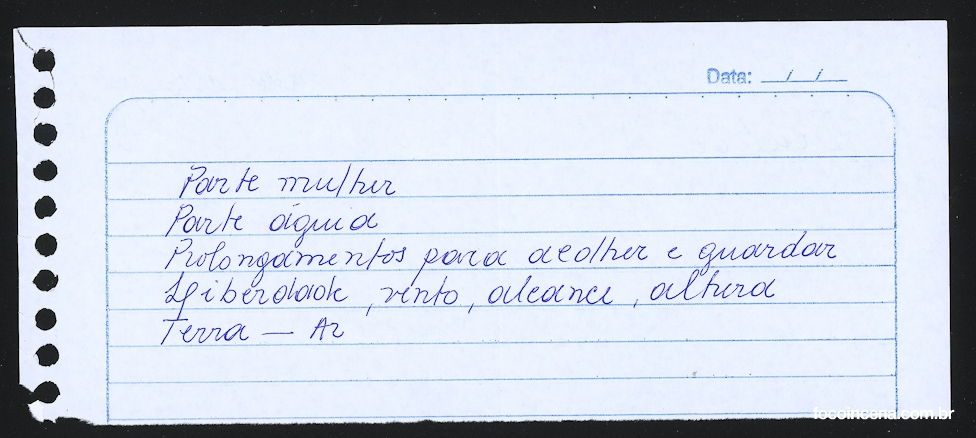 Data: __/__/__
Parte mulher
Parte águia
Prolongamentos para acolher e guardar
Liberdade, vento, alcance, altura
Terra — Ar
focoincena.com.br